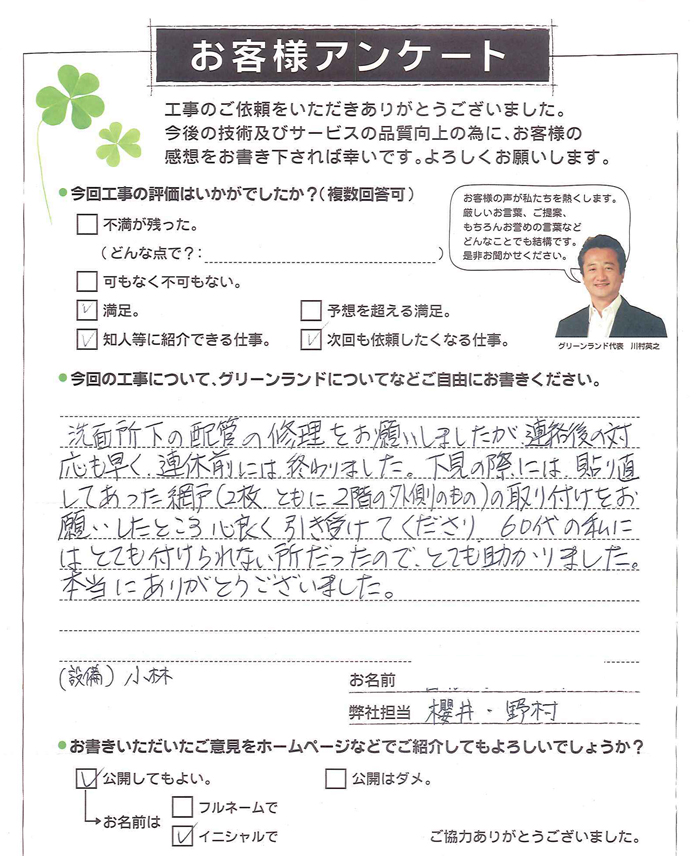 お客様アンケート
工事のご依頼をいただきありがとうございました。
今後の技術及びサービスの品質向上の為に、お客様の
感想をお書き下されば幸いです。よろしくお願いします。
●今回工事の評価はいかがでしたか？（複数回答可）
不満が残った。
（どんな点で？：　　　）
可もなく不可もない。
満足。
予想を超える満足。
知人等に紹介できる仕事。
次回も依頼したくなる仕事。
お客様の声が私たちを熱くします。
厳しいお言葉、ご提案、
もちろんお誉めの言葉など
どんなことでも結構です。
是非お聞かせください。
グリーンランド代表　川村英之
●今回の工事について、グリーンランドについてなどご自由にお書きください。
洗面所下の配管の修理をお願いしましたが、連絡後の対
応も早く、連休前には終わりました。下見の際には、貼り直
してあった網戸（2枚 ともに2階の外側のもの）の取り付けをお
願いしたところ心良く引き受けてくださり、60代の私に
はとても付けられない所だったので、とても助かりました。
本当にありがとうございました。
（設備）小林
お名前
弊社担当　櫻井・野村
●お書きいただいたご意見をホームページなどでご紹介してもよろしいでしょうか？
公開してもよい。
公開はダメ。
お名前は
フルネームで
イニシャルで
ご協力ありがとうございました。